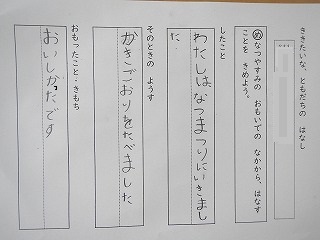 ききたいな、ともだちの はなし
め なつやすみの おもいでの なかから、はなす
ことを きめよう。
したこと
わたしは、なつまつりにいきまし
た。
そのときの ようす
かきごおりをたべました
おもったこと・きもち
おいしかたです